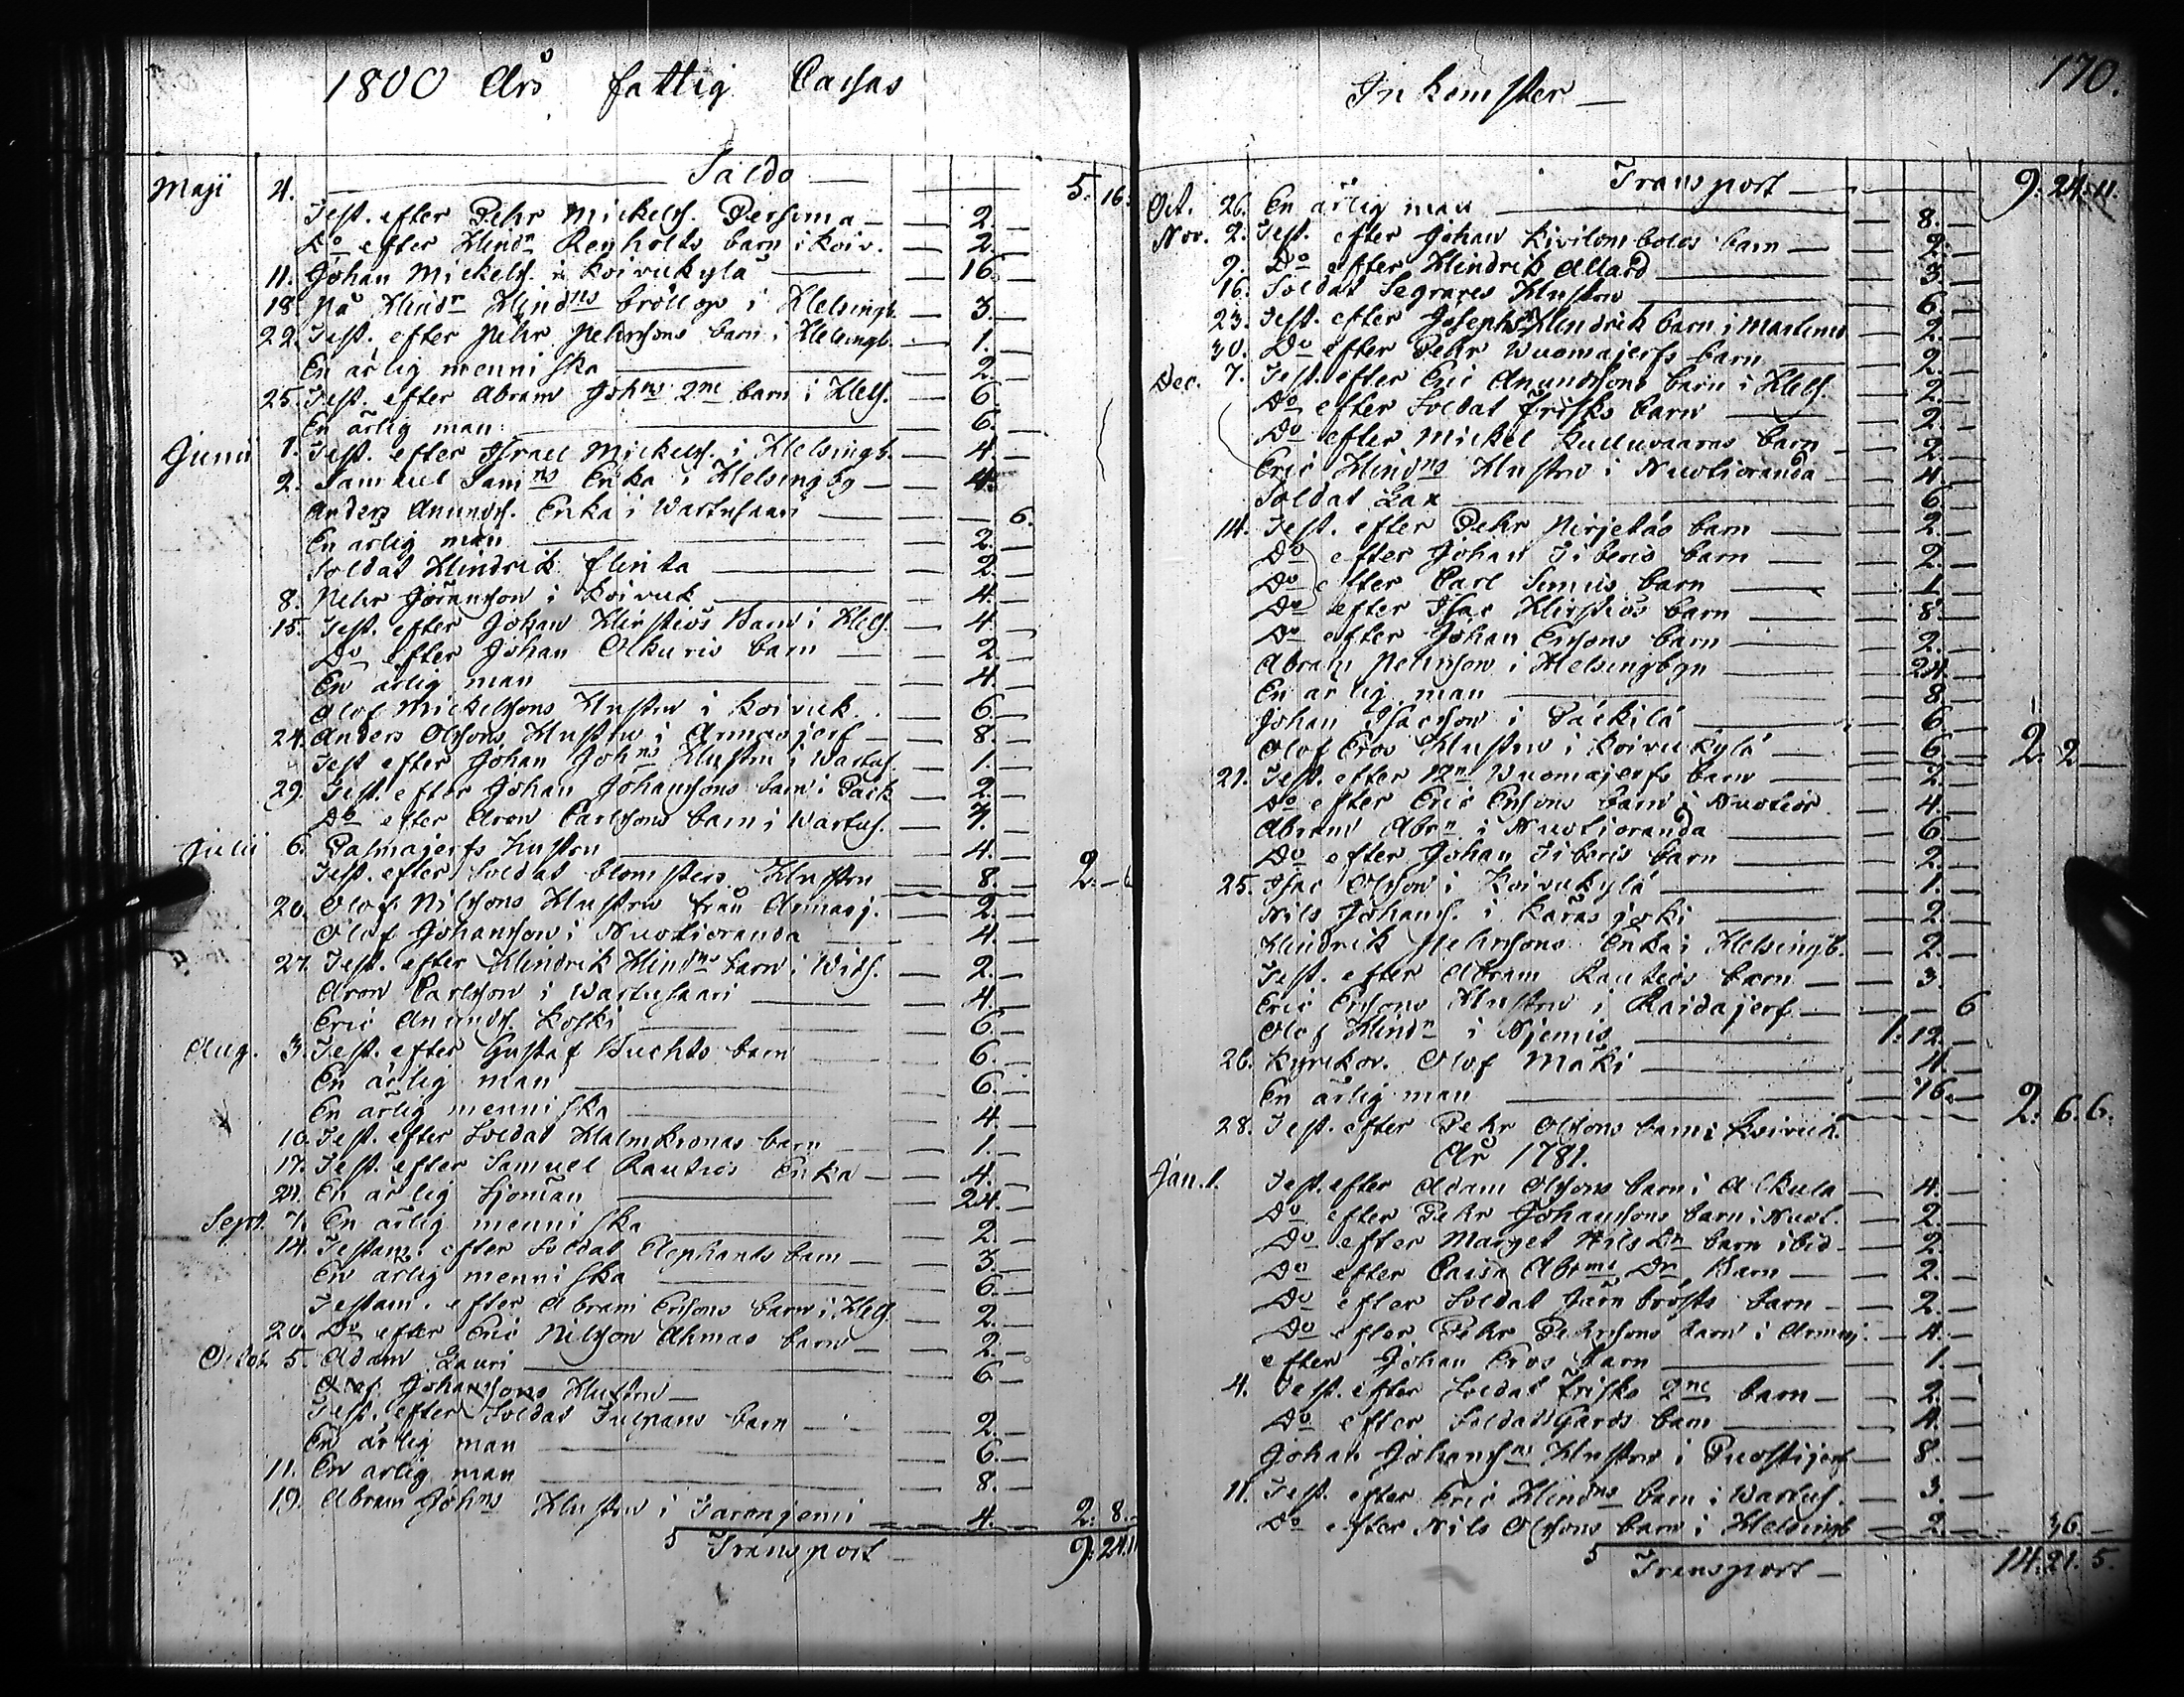 1800 Års fattig Cassas
Saldo — 5. 16.
Maji 4. Test. efter Pehr Mickelss. Persoma — 2. —
Do efter Hindr Renholts barn i Koiv. — 2. —
11. Johan Mickelss. i Koivukylä — 16. —
18. På Hindr Hindrns bröllop i Helsingb. — 3. —
22. Test. efter Pehr Pehrssons barn i Helsingb. — 1. —
En ärlig menniska — 2. —
25. Test. efter Abram Johns 2ne barn i Hels. — 6. —
En ärlig man — 6. —
Junii 1. Test. efter Israel Mickelss. i Helsingb. — 4. —
2. Samuel Samns Enka i Helsingbg — 4. —
Anders Anundss. Enka i Wartusaari — 6.
En ärlig man — 2. —
Soldat Hindrik Flinta — 2. —
8. Pehr Göransson i Koivuk — 4. —
15. Test. efter Johan Hirstiös Barn i Hels. — 4. —
Do efter Johan Olkuris barn — 2. —
En ärlig man — 4. —
Olof Mickelssons Hustru i Koivuk. — 6. —
24. Anders Olssons Hustru i Armasjerf — 8. —
Test efter Johan Johns Hustru i Wartus. — 1. —
29. Test. efter Johan Johanssons barn i Päck — 2. —
Do efter Aron Carlssons barn i Wartus. — 7. —
Julii 6. Palmajerfs hustru — 4. —
Test. efter Soldat Blomsters Hustru — 8. — 2. —
20. Olof Nilssons Hustru från Armasj. — 2. —
Olof Johansson i Nuotioranda — 4. —
27. Test. efter Hindrik Hindns barn i Wits. — 2. —
Aron Carlsson i Wartusaari — 4. —
Eric Anundss. Koski — 6. —
Aug. 3. Test. efter Gustaf Buchts barn — 6. —
En ärlig man — 6. —
En ärlig menniska — 4. —
10. Test. efter Soldat Malmkronas barn — 1. —
17. Test. efter Samuel Rautios Enka — 4. —
24. En ärlig Sjöman — 24. —
Sept. 7. En ärlig menniska — 2. —
14. Testam. efter Soldat Elephants barn — 3. —
En ärlig menniska — 6. —
Testam. efter Abram Erssons barn i Hels. — 2. —
20. Do efter Eric Nilsson Ahmas barn — 2. —
Octob. 5. Adam Lauri — 6. —
Olof Johanssons Hustru —
Test. efter Soldat Tulpans barn — 2. —
En ärlig man — 6. —
11. En ärlig man — 8. —
19. Abram Johns Hustru i Jaronjemi — 4. — 2. 8. —
S Transport — 9. 24. 11
Inkomster —
170.
Transport — 9. 24. 11.
Oct. 26. En ärlig man — 8. —
Nov. 2. Test. efter Johan Kivilombolos barn — 2. —
9. Do efter Hindrik Allard — 3. —
16. Soldat Segrares Hustru — 6. —
23. Test. efter Joseph Hindrik barn i Martimo — 2. —
30. Do efter Pehr Wuomajerfs barn — 2. —
Dec. 7. Test. efter Eric Anundssons barn i Hels. — 2. —
Do efter Soldat Frisks barn — 2. —
Do efter Mickel Kuiluvaaras barn — 2. —
Eric Hindns Hustru i Nuotioranda — 4. —
Soldat Lax — 6. —
14. Test. efter Pehr Nirjetäs barn — 2. —
Do efter Johan Jiberis barn — 2. —
Do efter Carl Simuis barn — 1. —
Do efter Isac Hirstiös barn — 8. —
Do efter Johan Erssons barn — 2. —
Abram Pehrsson i Helsingbyn — 24. —
En ärlig man — 8 —
Johan Isacsson i Päckilä — 6. —
Olof Eros Hustru i Koivukylä — 6. — 2. 2 —
21. Test. efter Wuomajerfs barn — 2. —
Do efter Eric Erssons barn i Nuotior. — 4. —
Abram Abrn i Nuotioranda — 6. —
Do efter Johan Jiberis barn — 2. —
25. Isac Olsson i Koivukylä — 1. —
Nils Johanss. i Karasjoki — 2. —
Hindrik Pehrssons Enka i Helsingb. — 2. —
Test. efter Abram Rautios barn — 3.
Eric Erssons Hustru i Raidajerf — 6
Olof Hindn i Njemis — 1. 12. —
26. Kyrckov. Olof Mäki — 4. —
En ärlig man — 16. — 2. 6. 6.
28. Test. efter Pehr Olssons barn i Koivuk.
År 1781.
Jan. 1. Test. efter Adam Olssons barn i Alkula — 4. —
Do efter Pehr Johanssons barn i Nuot. — 2. —
Do efter Marget Nils Dn barn ibid — 2. —
Do efter Caisa Abrms Dn Barn — 2. —
Do efter Soldat Järnbrösts barn — 2. —
Do efter Pehr Pehrssons barn i Armasj. — 4. —
efter Johan Eros barn — 1. —
4. Test. efter Soldat Frisks 2ne barn — 2. —
Do efter Soldat Gards barn — 4. —
Johan Johanssns Hustru i Puostijerf — 8. —
11. Test. efter Eric Hindns barn i Wartus. — 3. —
Do efter Nils Olssons barn i Helsingb — 2. — 36. —
S Transport — 14. 21. 5.